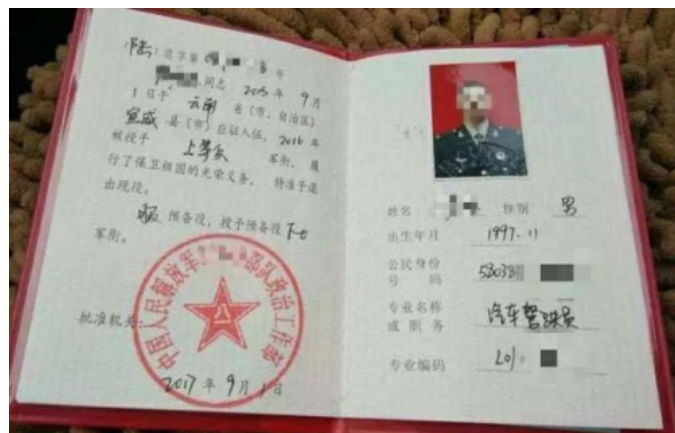 (陆)退字第 号
同志 2015 年 9 月
1 日于 云南 省(市、自治区)
宣威 县(市)应征入伍, 2016 年
被授予 上等兵 军衔,履
行了保卫祖国的光荣义务, 特准予退
出现役。
服 预备役,授予预备役 下士
军衔。
批准机关:
中国人民解放军 部队政治工作部
八一
2017 年 9 月 1 日
姓名 性别 男
出生年月 1997.11
公民身份
号 码 53038
专业名称 汽车驾驶员
或 职 务
专业编码 201